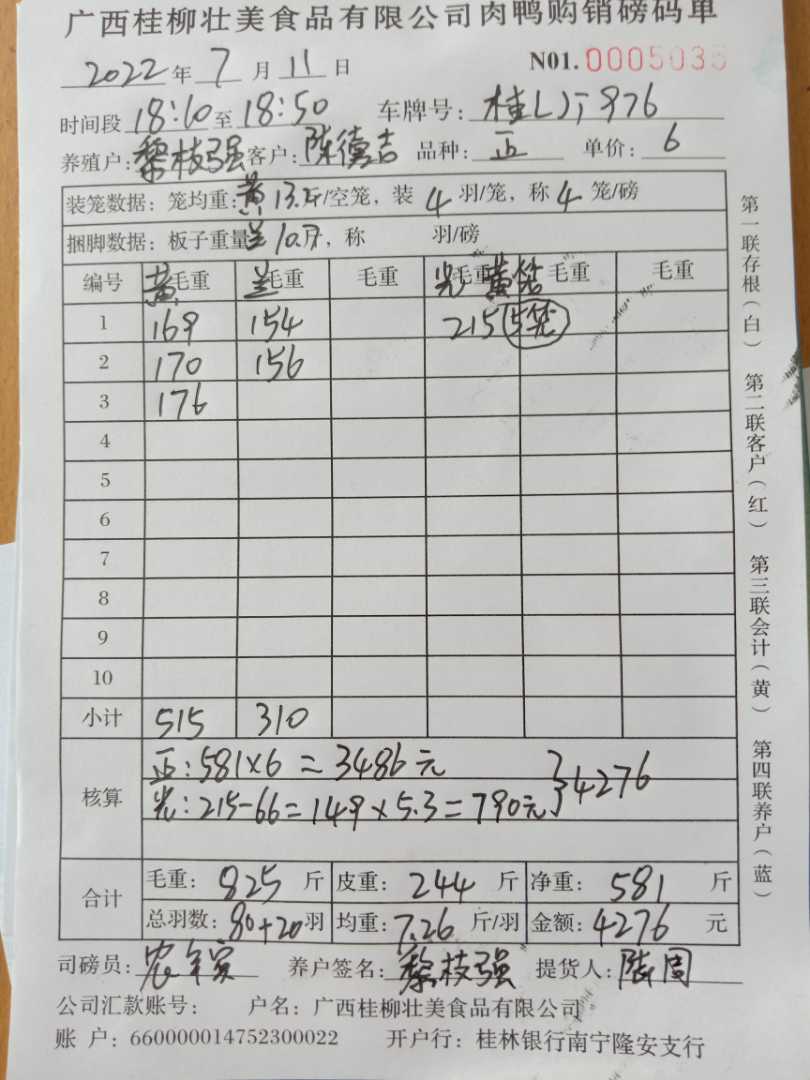 广西桂柳壮美食品有限公司肉鸭购销磅码单
2022 年 7 月 11 日 N01. 0005035
时间段 18:10 至 18:50 车牌号: 桂L 976
养殖户: 黎枝强 客户: 陈德吉 品种: 正 单价: 6
装笼数据: 笼均重: 黄 13.斤/空笼, 装 4 羽/笼, 称 4 笼/磅
捆脚数据: 板子重量 兰 10.斤, 称 羽/磅
编号 黄 毛重 兰 毛重 毛重 光 毛重 黄笼 毛重 毛重
1 169 154 215 5笼
2 170 156
3 176
4
5
6
7
8
9
10
小计 515 310
核算
正: 581×6 = 3486 元
光: 215-66=149×5.3=790元 } 4276
合计
毛重: 825 斤 皮重: 244 斤 净重: 581 斤
总羽数: 80+20 羽 均重: 7.26 斤/羽 金额: 4276 元
司磅员: 养户签名: 黎枝强 提货人:
公司汇款账号: 户名: 广西桂柳壮美食品有限公司
账 户: 660000014752300022 开户行: 桂林银行南宁隆安支行
第一联存根(白) 第二联客户(红) 第三联会计(黄) 第四联养户(蓝)